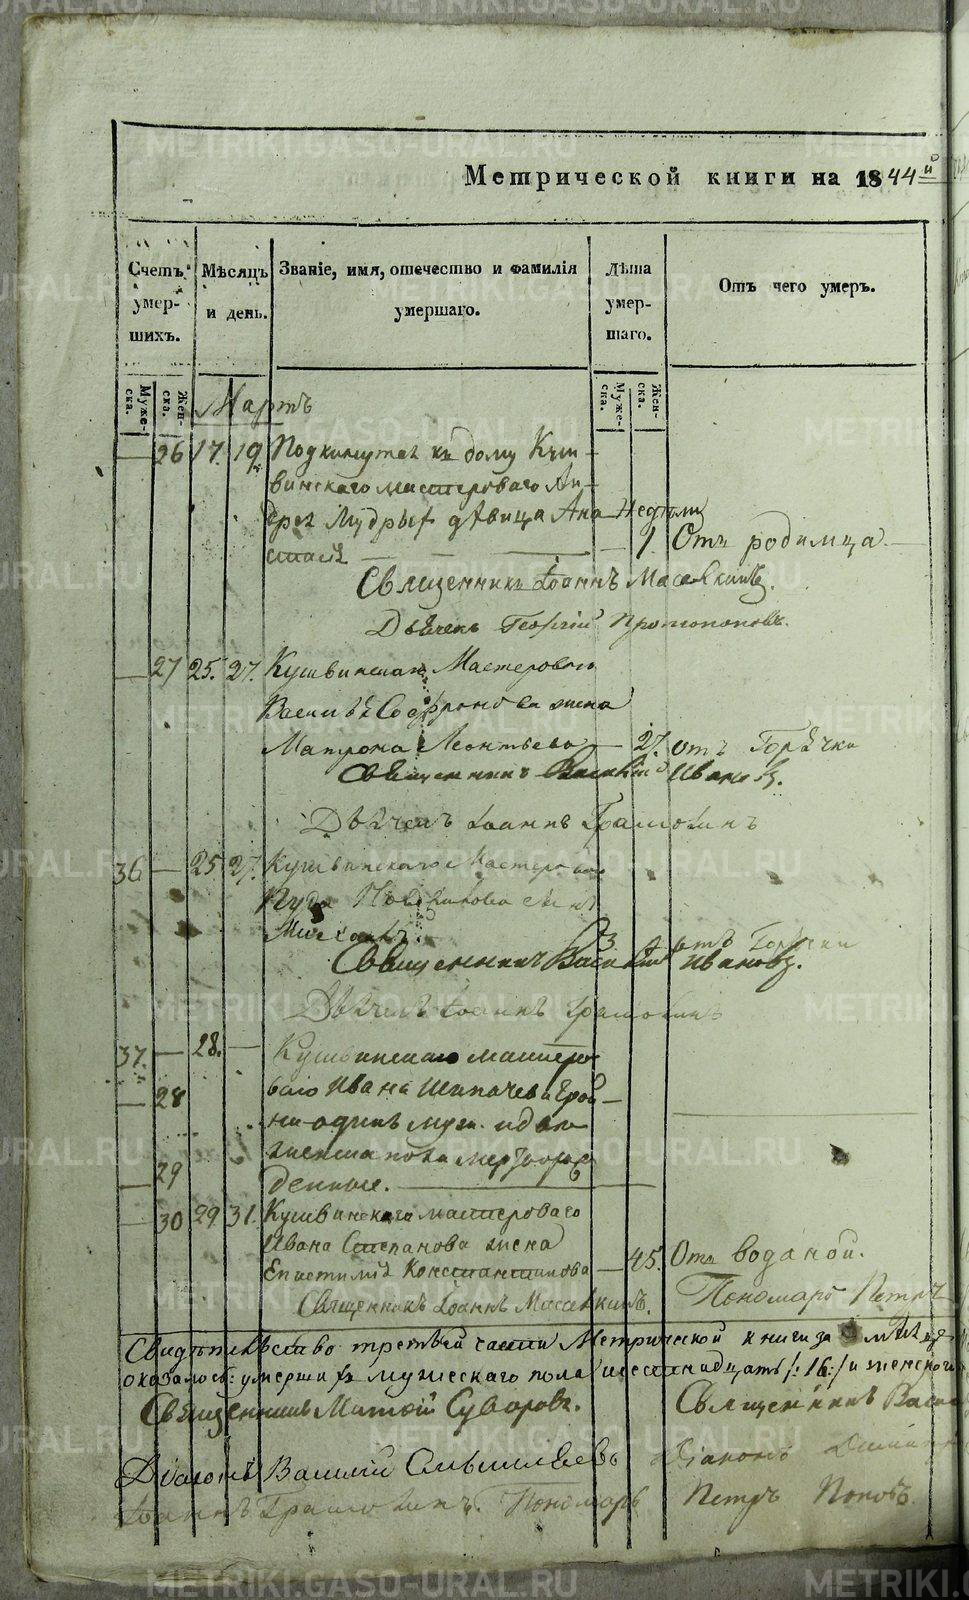 Метрической книги на 1844й
Счетъ умер- шихъ.
Мѣсяцъ и день.
Званіе, имя, отечество и фамилія умершаго.
Лѣта умер- шаго.
Отъ чего умеръ.
Муже- ска.
Жен- ска.
Муже- ска.
Жен- ска.
Мартъ
— 26 17. 19. Подкинутая къ дому Куш-
винскаго мастероваго Ан-
дрея Мудрых дѣвица Ана- Недѣли
стасія — — — 1. Отъ родимца —
Священникъ Іоаннъ
Дьячекъ Георгій Протопоповъ.
— 27 25. 27. Мастероваго
Василья Софронова жена
Матрона Леонтьева — 27. отъ Горячки
Священникъ Василій Ивановъ.
Дьячекъ Іоаннъ
36 — 25 27. Кушвинскаго Мастероваго
сынъ
отъ Горячки
Священникъ Василій Ивановъ.
Дьячекъ Іоаннъ
37. — 28. — Кушвинскаго мастеро-
— 28 ваго Ивана
ни одинъ муж. и два
— 29 женска пола мерторож-
денные.
— 30 29. 31. Кушвинскаго мастероваго
Ивана Степанова жена
Епистимія Константинова — 45. Отъ водяной.
Священникъ Іоаннъ Пономарь Петръ
третьей части Метрической книги за
оказалось: умерших мужескаго пола шестнадцать /:16:/ и женскаго
Священникъ Матфій Суворовъ. Священникъ
Діаконъ Василій Діаконъ
Іоаннъ Пономарь Петръ Поповъ.
METRIKI.GASO-URAL.RU